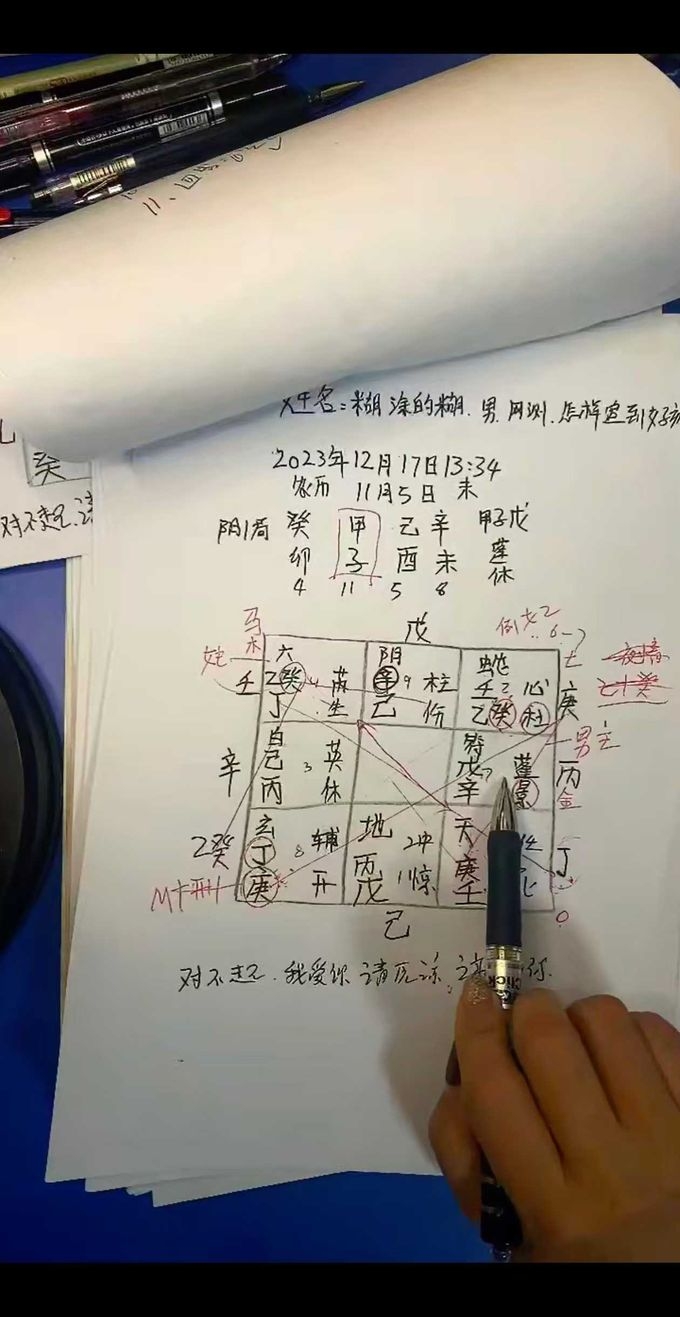 11、回
姓名:糊涂的糊.男.网测.怎样追到好
2023年12月17日13:34
农历 11月5日 未
阴1局 癸 甲 己 辛 甲子戊
卯 子 酉 未 蓬
4 11 5 8 休
癸
对不起.
马 戊 例
木 六 阴 蛇 七
壬 乙癸 4 芮 辛 9 柱 壬 2 心 庚
丁 生 己 伤 乙癸 杜
男主
辛 白 己 3 英 符 戊 7 蓬 丙
丙 休 辛 景 金
乙癸 玄 丁 8 辅 地 2冲 天 丁
刑 庚 开 丙戊 1惊 庚壬
己 0
对不起.我爱你.请原谅.
Click